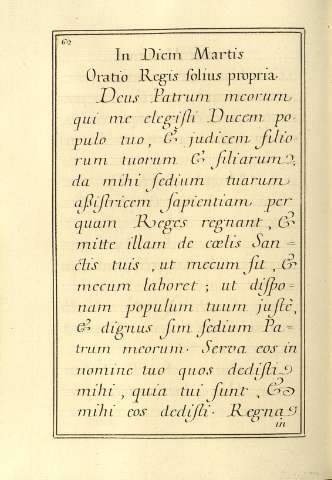 62
In Diem Martis
Oratio Regis solius propria.
Deus Patrum meorum
qui me elegisti Ducem po-
pulo tuo, & judicem filio
rum tuorum & filiarum,
da mihi sedium tuarum
assistricem sapientiam per
quam Reges regnant, &
mitte illam de cœlis San=
ctis tuis, ut mecum sit, &
mecum laboret; ut dispo-
nam populum tuum justè,
& dignus sim sedium Pa-
trum meorum. Serva eos in
nomine tuo quos dedisti
mihi, quia tui sunt, &
mihi eos dedisti. Regna
in